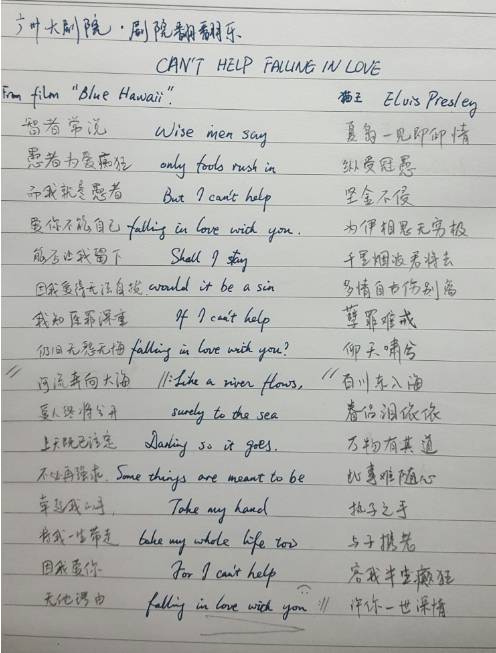 六叶大剧院·剧院翻翻乐
CAN'T HELP FALLING IN LOVE
From film "Blue Hawaii". 猫王 Elvis Presley
智者常说 Wise men say 夏岛一见即仰情
愚者为爱疯狂 only fools rush in 纵受冠愚
而我就是愚者 But I can't help 坚金不侵
爱你不能自已 falling in love with you. 为伊相思无穷极
能否让我留下 Shall I stay 千里烟波君将去
因我爱得无法自拔 would it be a sin 多情自古伤别离
我知原罪深重 If I can't help 孽罪难戒
仍旧无怨无悔 falling in love with you? 仰天啸兮
// 河流奔向大海 //: Like a river flows, // 百川东入海
爱人终将分开 surely to the sea 眷侣泪依依
上天既已注定 Darling so it goes. 万物有其道
不必再强求 Some things are meant to be 此事难随心
牵起我的手, Take my hand 执子之手
将我一生带走 take my whole life too 与子携老
因我爱你 For I can't help 容我半生癫狂
无他谓由 falling in love with you :// 许你一世深情